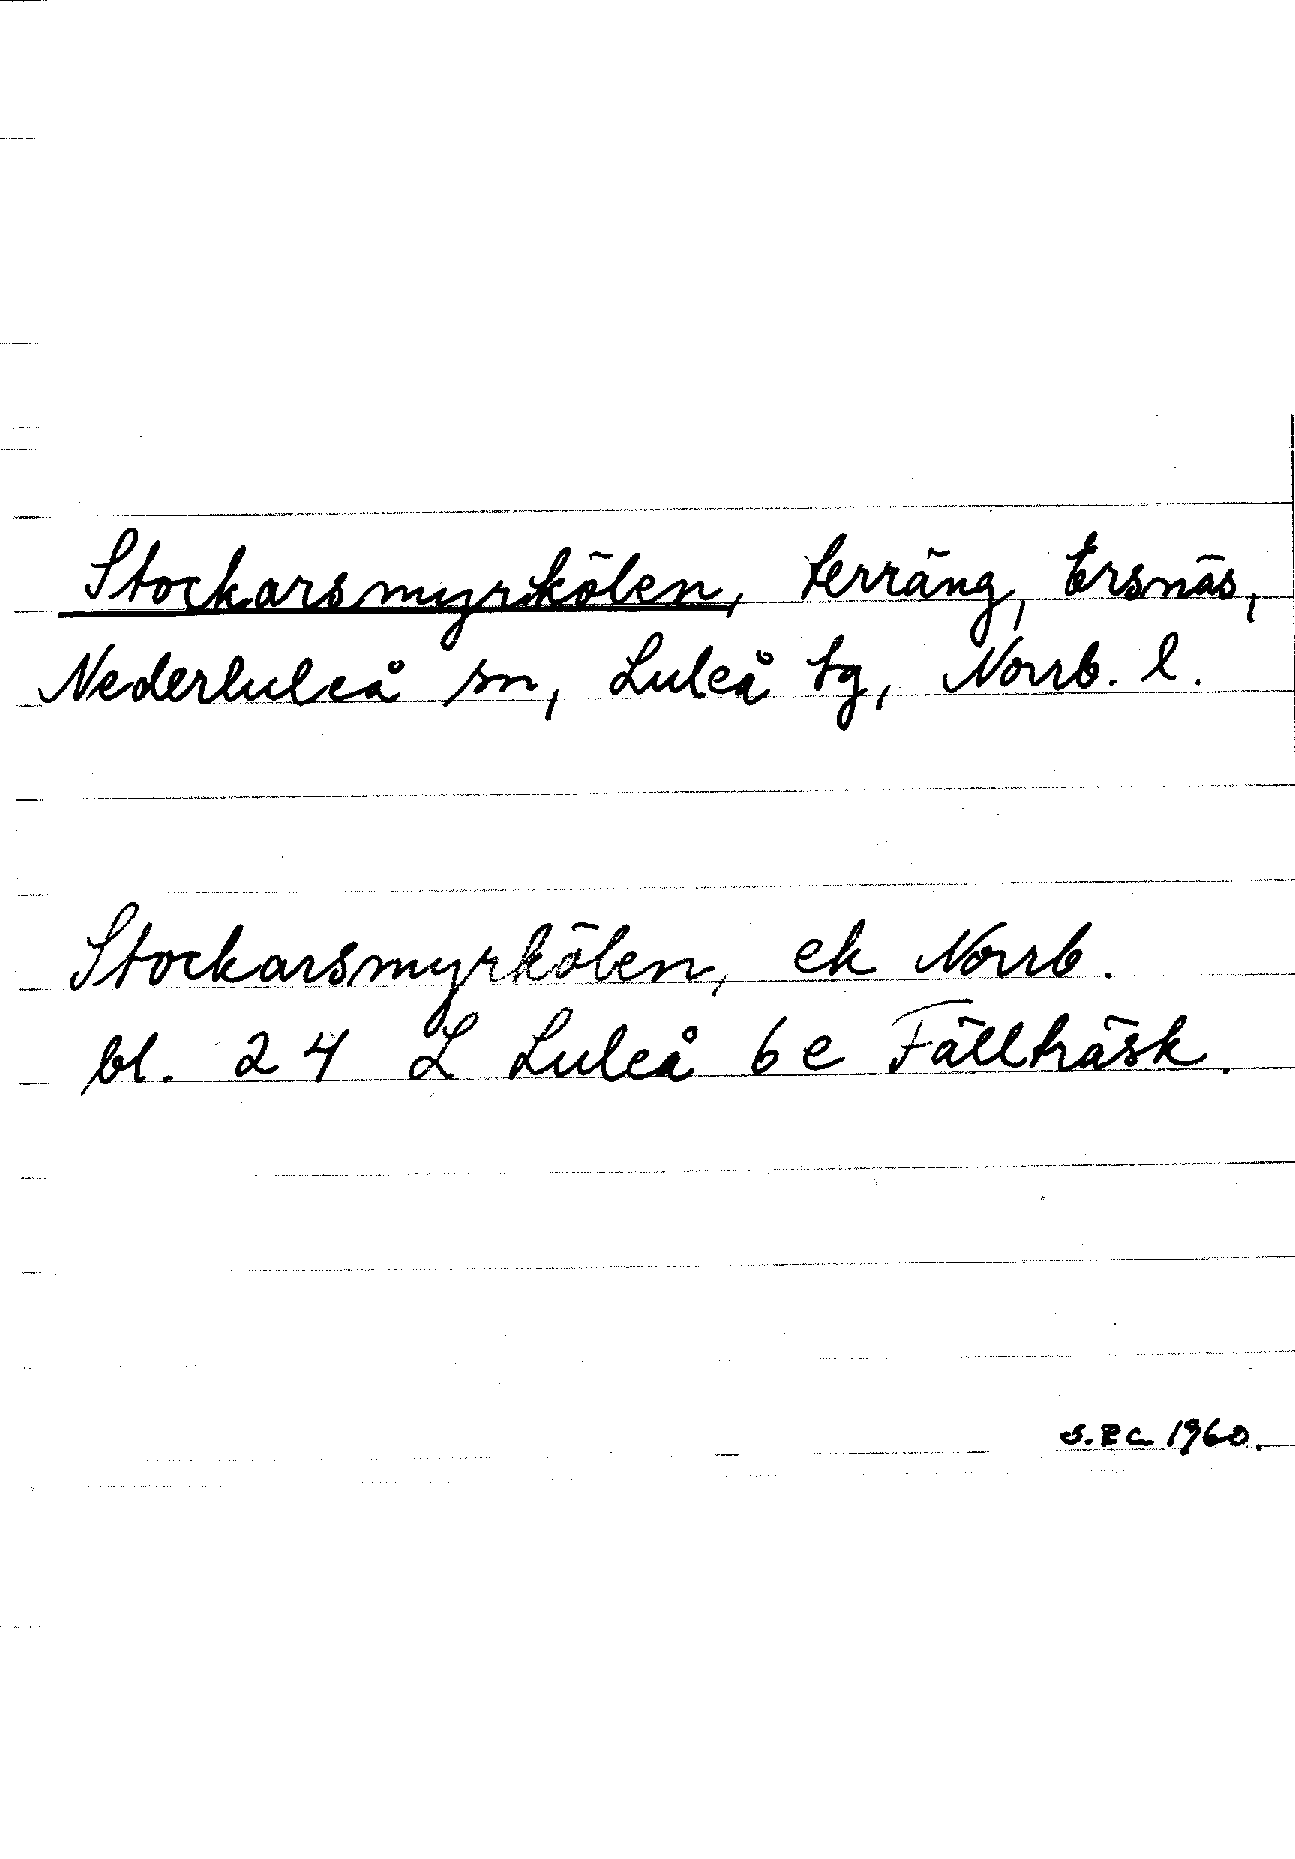 Stockarsmyrkölen, terräng, Ersnäs,
Nederluleå sn, Luleå tg, Norrb. l.
Stockarsmyrkölen, ek Norrb.
bl. 24 L Luleå 6e Fällträsk.
1960.